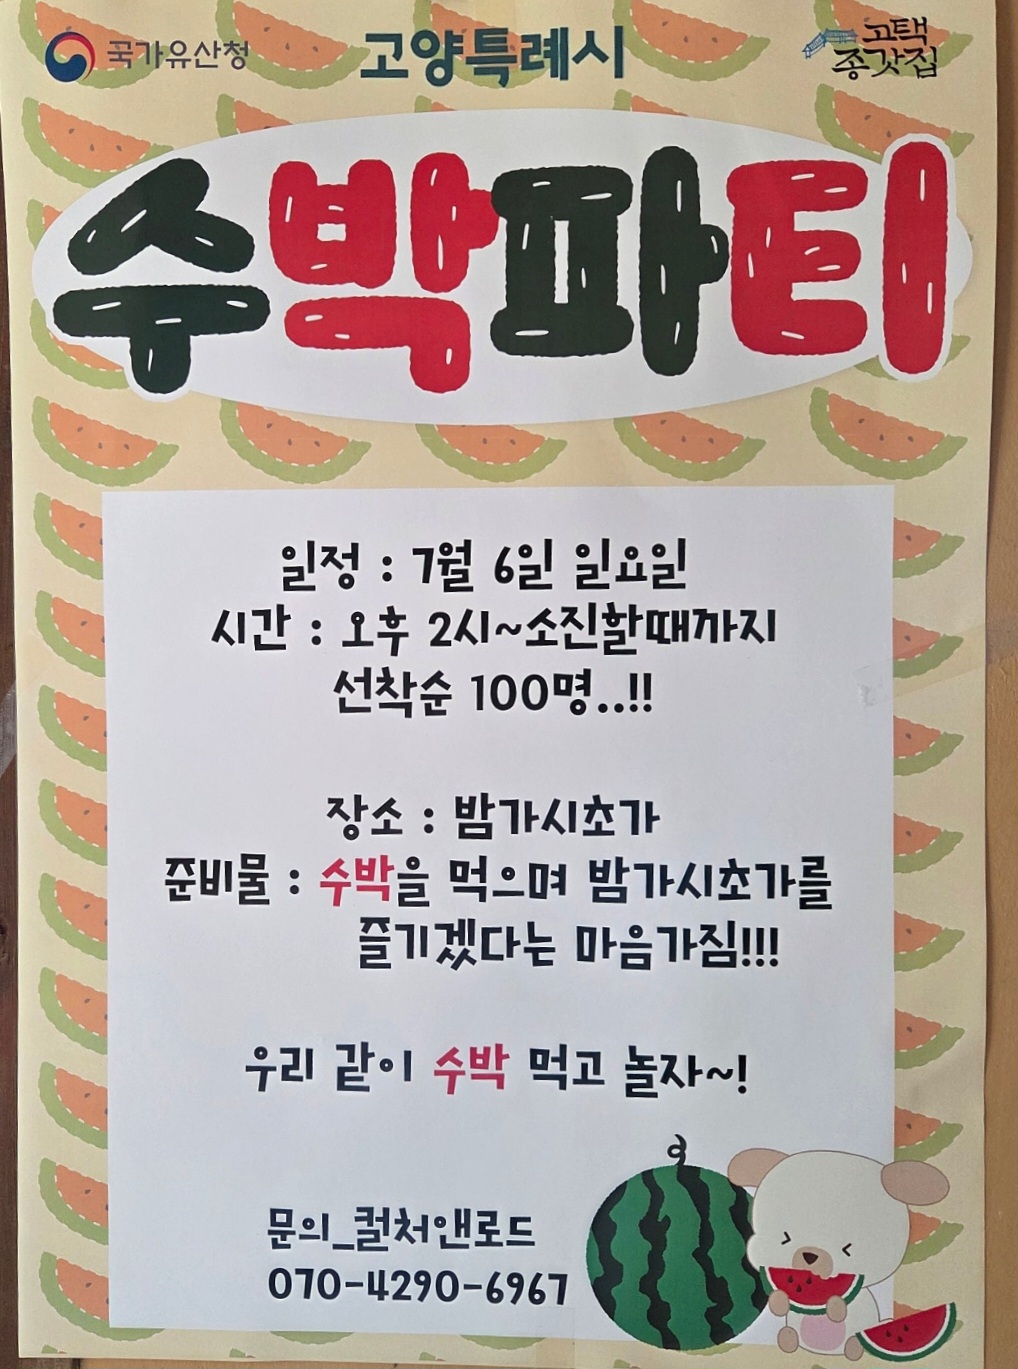 국가유산청
고양특례시
고택
종갓집
수박파티
일정 : 7월 6일 일요일
시간 : 오후 2시~소진할때까지
선착순 100명..!!
장소 : 밤가시초가
준비물 : 수박을 먹으며 밤가시초가를
즐기겠다는 마음가짐!!!
우리 같이 수박 먹고 놀자~!
문의_컬처앤로드
070-4290-6967